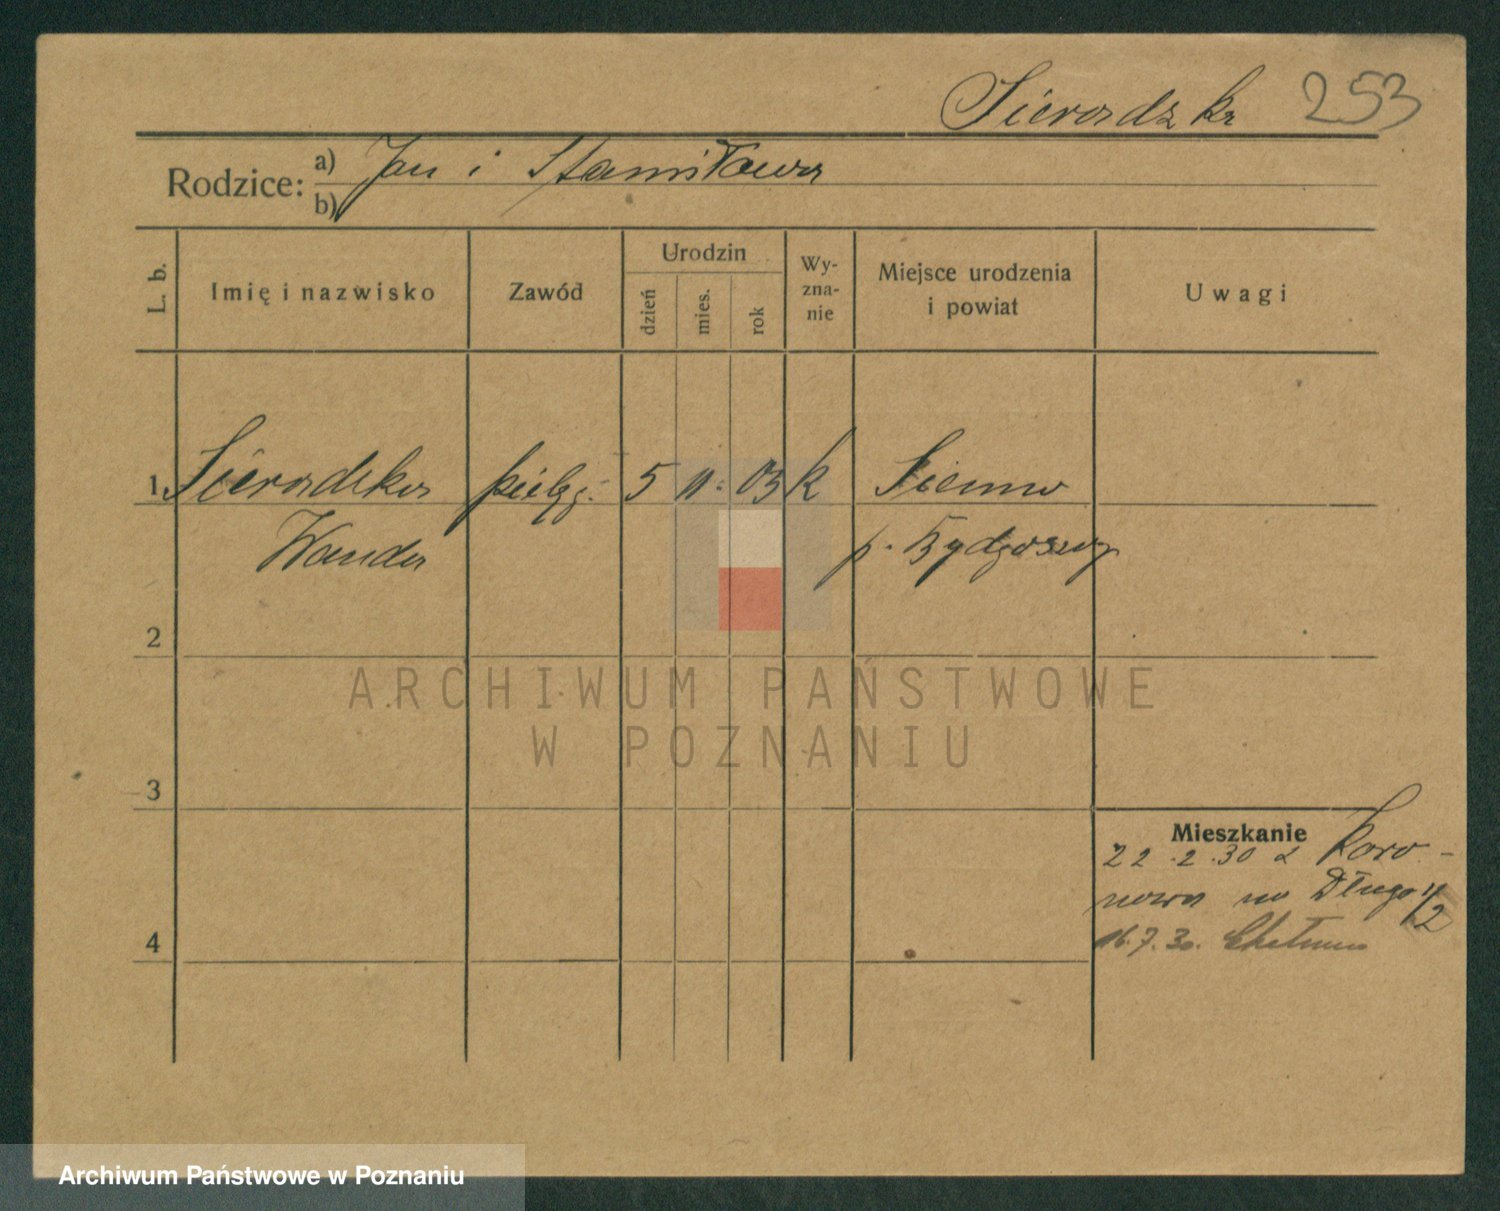 Sieradzka 253
Rodzice: a) Jan i Stanisława
b)
L. b. Imię i nazwisko Zawód Urodzin dzień mies. rok Wy-zna-nie Miejsce urodzenia i powiat Uwagi
1 Sieradzka pielęg. 5 11. 03 k Sienno
Wanda p. Bydgoszcz
2
ARCHIWUM PAŃSTWOWE
W POZNANIU
3
Mieszkanie
22.2.30 z Koro-
nowa na Długa 1/2
4
16.7.30. Chełmno
Archiwum Państwowe w Poznaniu